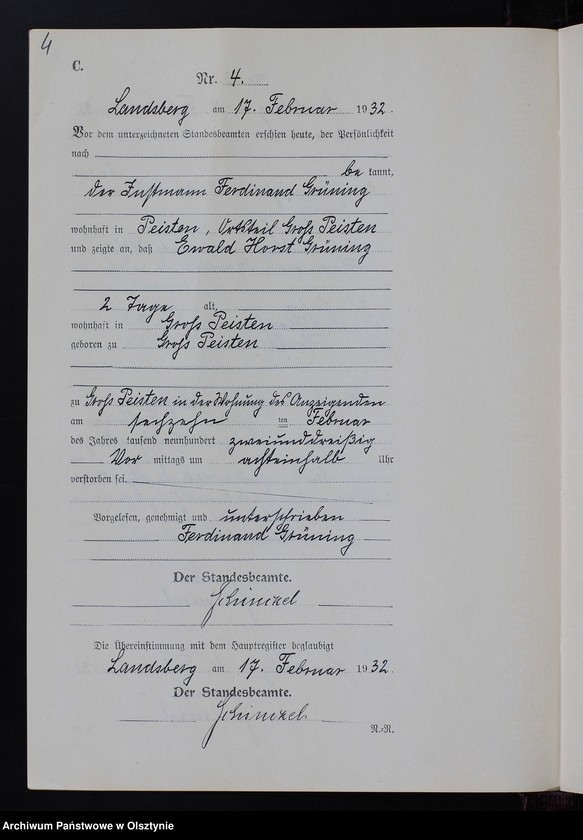 4
C.
Nr. 4.
Landsberg am 17. Februar 1932.
Vor dem unterzeichneten Standesbeamten erschien heute, der Persönlichkeit
nach
bekannt,
der Instmann Ferdinand Grüning
wohnhaft in Peisten, Ortsteil Gross Peisten
und zeigte an, daß Ewald Horst Grüning
2 Tage alt,
wohnhaft in Gross Peisten
geboren zu Gross Peisten
zu Gross Peisten in der Wohnung des Anzeigenden
am sechzehnten Februar
des Jahres tausend neunhundert zweiunddreißig
Vormittags um achteinhalb Uhr
verstorben sei.
Vorgelesen, genehmigt und unterschrieben
Ferdinand Grüning
Der Standesbeamte.
Schinckel
Die Übereinstimmung mit dem Hauptregister beglaubigt
Landsberg am 17. Februar 1932.
Der Standesbeamte.
Schinckel
N.-R.
Archiwum Państwowe w Olsztynie